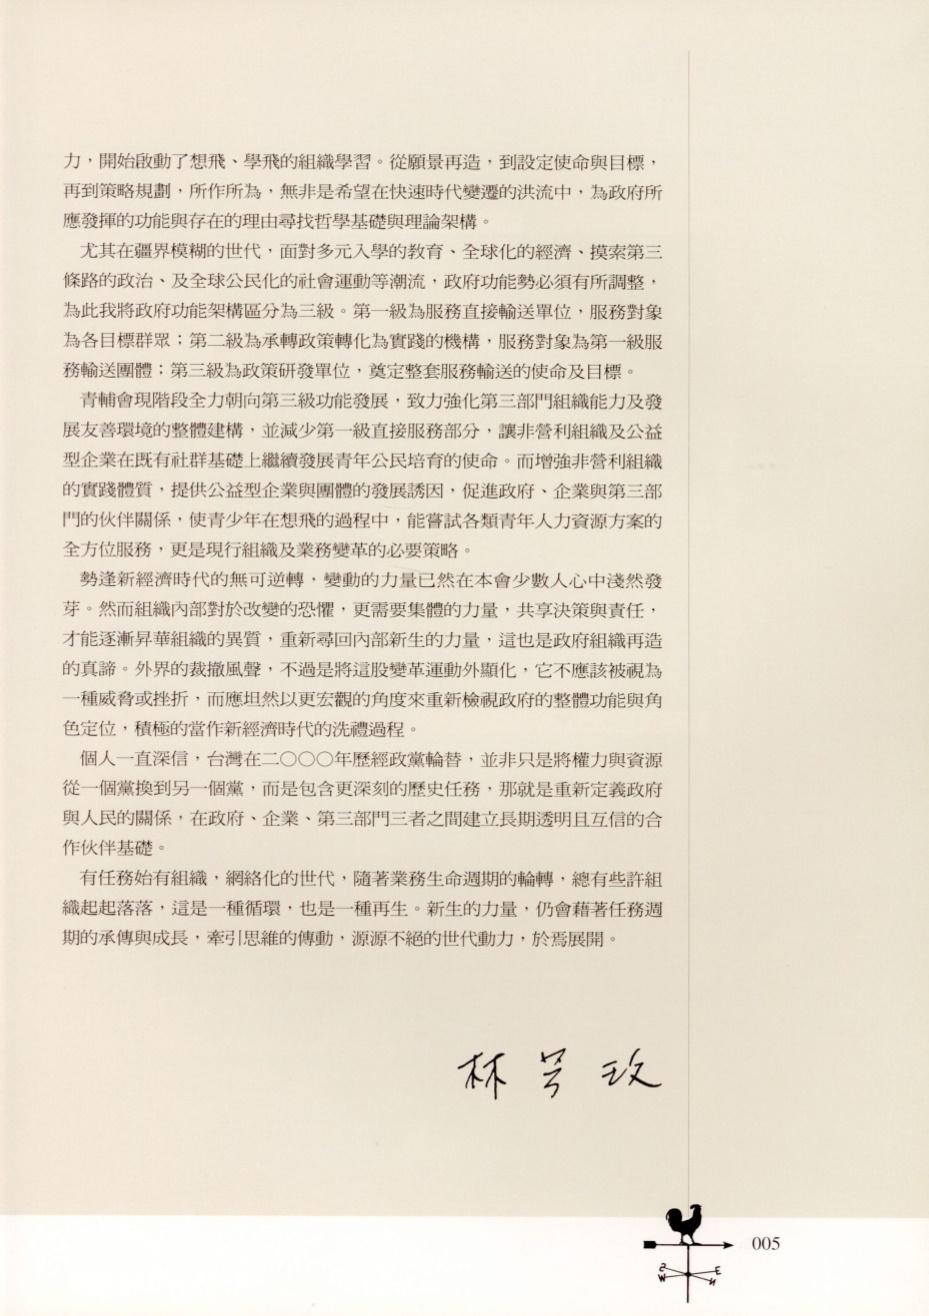 力，開始啟動了想飛、學飛的組織學習。從願景再造，到設定使命與目標，
再到策略規劃，所作所為，無非是希望在快速時代變遷的洪流中，為政府所
應發揮的功能與存在的理由尋找哲學基礎與理論架構。
尤其在疆界模糊的世代，面對多元入學的教育、全球化的經濟、摸索第三
條路的政治、及全球公民化的社會運動等潮流，政府功能勢必須有所調整，
為此我將政府功能架構區分為三級。第一級為服務直接輸送單位，服務對象
為各目標群眾；第二級為承轉政策轉化為實踐的機構，服務對象為第一級服
務輸送團體；第三級為政策研發單位，奠定整套服務輸送的使命及目標。
青輔會現階段全力朝向第三級功能發展，致力強化第三部門組織能力及發
展友善環境的整體建構，並減少第一級直接服務部分，讓非營利組織及公益
型企業在既有社群基礎上繼續發展青年公民培育的使命。而增強非營利組織
的實踐體質，提供公益型企業與團體的發展誘因，促進政府、企業與第三部
門的伙伴關係，使青少年在想飛的過程中，能嘗試各類青年人力資源方案的
全方位服務，更是現行組織及業務變革的必要策略。
勢逢新經濟時代的無可逆轉，變動的力量已然在本會少數人心中淺然發
芽。然而組織內部對於改變的恐懼，更需要集體的力量，共享決策與責任，
才能逐漸昇華組織的異質，重新尋回內部新生的力量，這也是政府組織再造
的真諦。外界的裁撤風聲，不過是將這股變革運動外顯化，它不應該被視為
一種威脅或挫折，而應坦然以更宏觀的角度來重新檢視政府的整體功能與角
色定位，積極的當作新經濟時代的洗禮過程。
個人一直深信，台灣在二〇〇〇年歷經政黨輪替，並非只是將權力與資源
從一個黨換到另一個黨，而是包含更深刻的歷史任務，那就是重新定義政府
與人民的關係，在政府、企業、第三部門三者之間建立長期透明且互信的合
作伙伴基礎。
有任務始有組織，網絡化的世代，隨著業務生命週期的輪轉，總有些許組
織起起落落，這是一種循環，也是一種再生。新生的力量，仍會藉著任務週
期的承傳與成長，牽引思維的傳動，源源不絕的世代動力，於焉展開。
林芳玫
005
S E
W N